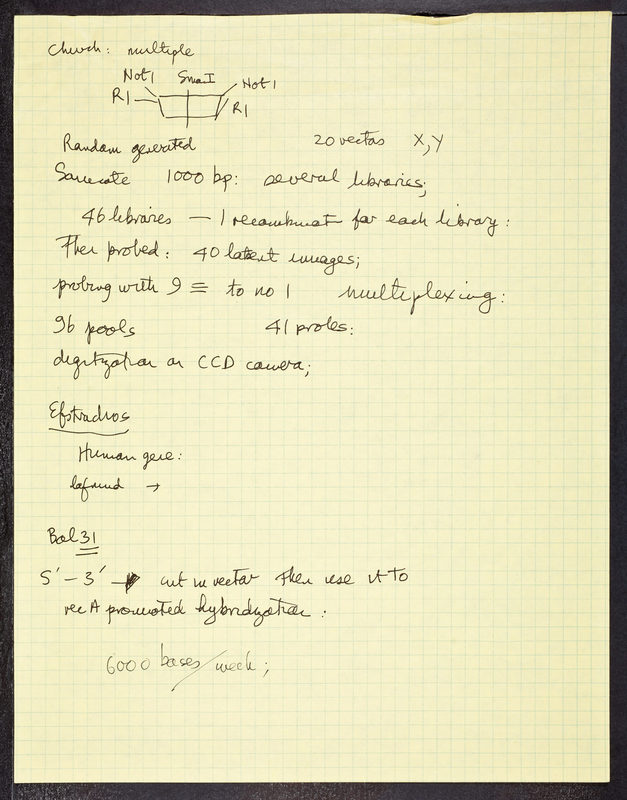 Church: multiple
Not1 SmaI Not1
R1 R1
Random generated 20 vectors X, Y
Sonicate 1000 bp: several libraries;
46 libraries — 1 recombinant for each library:
Then probed: 40 latent images;
probing with 9 ≡ to no 1 multiplexing:
96 pools 41 probes:
digitization on CCD camera;
Efstradios
Human gene:
→
Bal 31
5' - 3' → cut in vector then use it to
rec A promoted hybridization:
6000 bases/week;